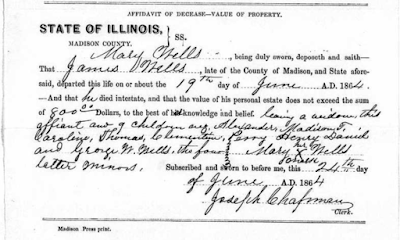 AFFIDAVIT OF DECEASE—VALUE OF PROPERTY.
STATE OF ILLINOIS, } SS.
MADISON COUNTY.
Mary Wells, being duly sworn, deposeth and saith—
That James Wells, late of the County of Madison, and State afore-
said, departed this life on or about the 19th day of June A.D. 1864.
—And that he died intestate, and that the value of his personal estate does not exceed the sum
of 800 Dollars, to the best of knowledge and belief leaving a widow, this
affiant and 9 children Alexander, Madison
Caroline, Thomas, Perry Henry Daniel
and George W. Wells, the four Mary Wells
latter minors.
Subscribed and sworn to before me, this 24th day
of June A.D. 1864
Joseph Chapman
Clerk.
Madison Press print.